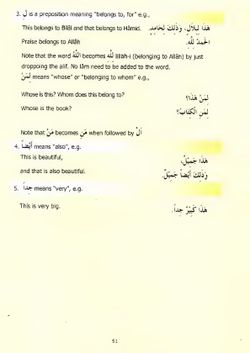 3. لِ is a preposition meaning "belongs to, for" e.g.,
This belongs to Bilāl and that belongs to Hāmid. هَذَا لِبِلَالٍ، وَذَلِكَ لِحَامِدٍ.
Praise belongs to Allāh الْحَمْدُ لِلَّهِ.
Note that the word اللَّهُ becomes لِلَّهِ lillāh-i (belonging to Allāh) by just
dropping the alif. No lām need to be added to the word.
لِمَنْ means "whose" or "belonging to whom" e.g.,
Whose is this? Whom does this belong to? لِمَنْ هَذَا؟
Whose is the book? لِمَنِ الْكِتَابُ؟
Note that مَنْ becomes مَنِ when followed by اَلْ
4. أَيْضًا means "also", e.g.
This is beautiful, هَذَا جَمِيْلٌ،
and that is also beautiful. وَذَلِكَ أَيْضًا جَمِيْلٌ.
5. جِداً means "very", e.g.
This is very big. هَذَا كَبِيْرٌ جِداً.
51